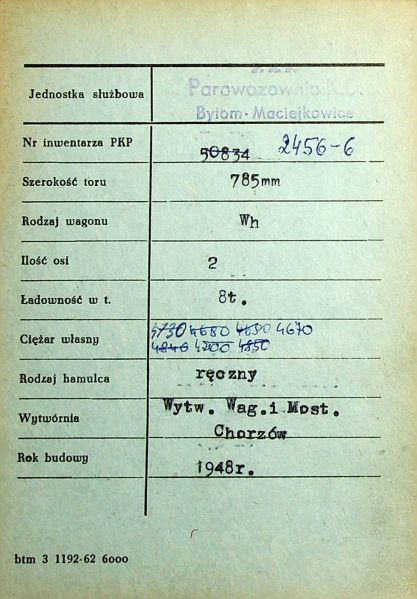 P. K. P.
Jednostka służbowa Parowozownia K.D.
Bytom-Maciejkowice
Nr inwentarza PKP 50834 2456-6
Szerokość toru 785mm
Rodzaj wagonu Wh
Ilość osi 2
Ładowność w t. 8t.
4730 4680 4690 4670
Ciężar własny
4846 4200 4850
Rodzaj hamulca ręczny
Wytwórnia Wytw. Wag.i Most.
Chorzów
Rok budowy 1948r.
btm 3 1192-62 6000